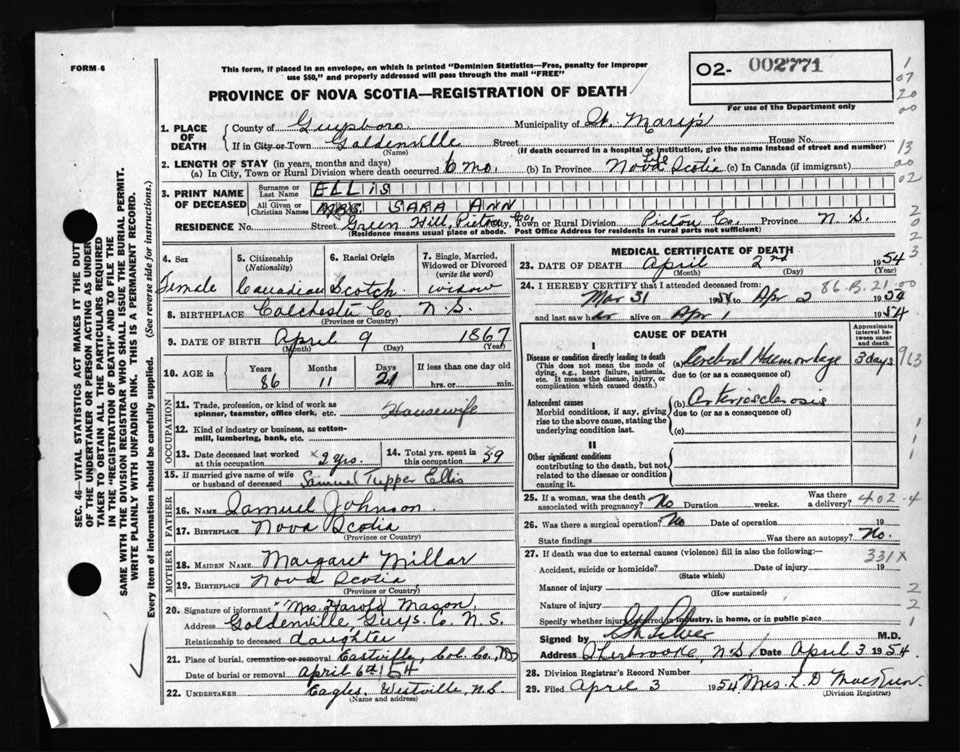 FORM 6
This form, if placed in an envelope, on which is printed "Dominion Statistics—Free, penalty for improper
use $50," and properly addressed will pass through the mail "FREE"
PROVINCE OF NOVA SCOTIA—REGISTRATION OF DEATH
02- 002771
For use of the Department only
1
07
20
00
13
00
02
2
0
2
3
1. PLACE OF DEATH
County of Guysboro Municipality of St. Marys
If in City or Town Goldenville Street House No.
(Name) (If death occurred in a hospital or institution, give the name instead of street and number)
2. LENGTH OF STAY (in years, months and days)
(a) In City, Town or Rural Division where death occurred 6 mo. (b) In Province Life Nova Scotia (c) In Canada (if immigrant)
3. PRINT NAME OF DECEASED
Surname or Last Name ELLIS
All Given or Christian Names MRS SARA ANN
RESIDENCE No. Street Green Hill, Pictou Co, City, Town or Rural Division Pictou Co. Province N.S.
(Residence means usual place of abode. Post Office Address for residents in rural parts not sufficient)
4. Sex
Female
5. Citizenship
(Nationality)
Canadian
6. Racial Origin
Scotch
7. Single, Married, Widowed or Divorced
(write the word)
widow
8. BIRTHPLACE Colchester Co. N.S.
(Province or Country)
9. DATE OF BIRTH April 9 1867
(Month) (Day) (Year)
10. AGE in Years 86 Months 11 Days 21 If less than one day old
hrs. or min.
OCCUPATION
11. Trade, profession, or kind of work as
spinner, teamster, office clerk, etc. Housewife
12. Kind of industry or business, as cotton-
mill, lumbering, bank, etc.
13. Date deceased last worked
at this occupation 2 yrs.
14. Total yrs. spent in
this occupation 59
15. If married give name of wife
or husband of deceased Samuel Tupper Ellis
FATHER
16. NAME Samuel Johnson
17. BIRTHPLACE Nova Scotia
(Province or Country)
MOTHER
18. MAIDEN NAME Margaret Millar
19. BIRTHPLACE Nova Scotia
(Province or Country)
20. Signature of informant "Mrs. Harold Mason,
Address Goldenville Guys. Co. N.S.
Relationship to deceased daughter
21. Place of burial, cremation or removal Eastville, Col. Co., N.S.
Date of burial or removal April 6th 54
22. UNDERTAKER Eagles, Westville, N.S.
(Name and address)
MEDICAL CERTIFICATE OF DEATH
23. DATE OF DEATH April 2nd 1954
(Month) (Day) (Year)
86.B.21.00
24. I HEREBY CERTIFY that I attended deceased from:
Mar 31 1954 to Apr 2 1954
and last saw her alive on Apr 1 1954
CAUSE OF DEATH
Approximate interval between onset and death
I
Disease or condition directly leading to death
(This does not mean the mode of dying, e.g., heart failure, asthenia, etc. It means the disease, injury, or complication which caused death.)
(a) Cerebral Haemorrhage 3 days
due to (or as a consequence of)
913
Antecedent causes
Morbid conditions, if any, giving rise to the above cause, stating the underlying condition last.
(b) Arteriosclerosis
due to (or as a consequence of)
(c)
II
Other significant conditions
contributing to the death, but not related to the disease or condition causing it.
1
1
25. If a woman, was the death
associated with pregnancy? No Duration weeks. Was there a delivery? 402.4
26. Was there a surgical operation? No Date of operation 19
State findings Was there an autopsy? No.
27. If death was due to external causes (violence) fill in also the following:— 331X
Accident, suicide or homicide? Date of injury 19
(State which)
Manner of injury
(How sustained)
Nature of injury
Specify whether injury occurred in industry, in home, or in public place
2
2
1
Signed by M.D.
Address Sherbrooke, N.S. Date April 3 1954.
28. Division Registrar's Record Number
29. Filed April 3 1954 Mrs. L. D.
(Division Registrar)
SEC. 46—VITAL STATISTICS ACT MAKES IT THE DUTY
OF THE UNDERTAKER OR PERSON ACTING AS UNDER-
TAKER TO OBTAIN ALL THE PARTICULARS REQUIRED
IN THE "REGISTRATION OF DEATH" AND TO FILE THE
SAME WITH THE DIVISION REGISTRAR WHO SHALL ISSUE THE BURIAL PERMIT.
WRITE PLAINLY WITH UNFADING INK. THIS IS A PERMANENT RECORD.
Every item of information should be carefully supplied. (See reverse side for instructions.)